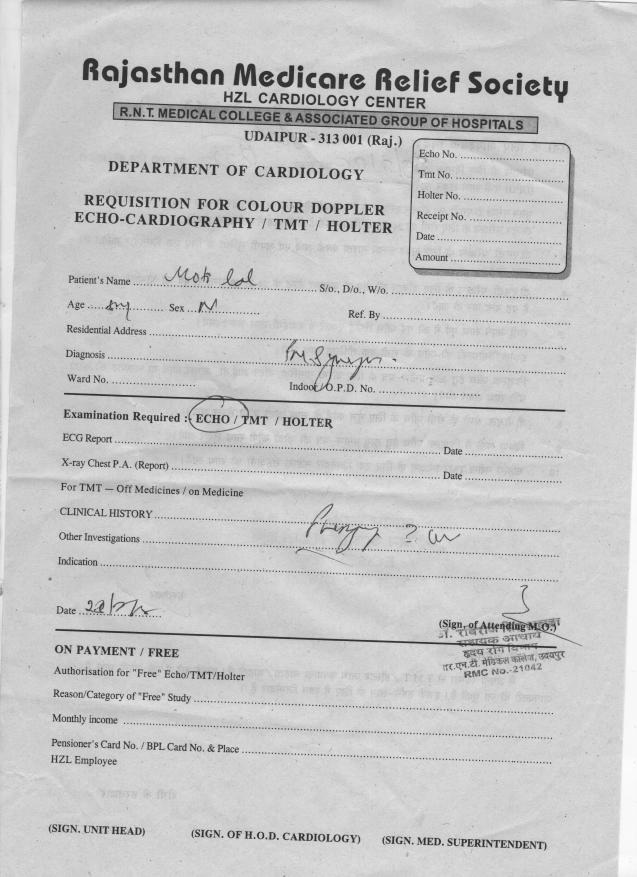 Rajasthan Medicare Relief Society
HZL CARDIOLOGY CENTER
R.N.T. MEDICAL COLLEGE & ASSOCIATED GROUP OF HOSPITALS
UDAIPUR - 313 001 (Raj.)
DEPARTMENT OF CARDIOLOGY
REQUISITION FOR COLOUR DOPPLER
ECHO-CARDIOGRAPHY / TMT / HOLTER
Echo No.
Tmt No.
Holter No.
Receipt No.
Date
Amount
Patient's Name Moti lal S/o., D/o., W/o.
Age Sex M Ref. By
Residential Address
Diagnosis
Ward No. Indoor/O.P.D. No.
Examination Required :- ECHO / TMT / HOLTER
ECG Report Date
X-ray Chest P.A. (Report) Date
For TMT — Off Medicines / on Medicine
CLINICAL HISTORY
Other Investigations
Indication
Date
(Sign. of Attending M.O.)
सहायक आचार्य
हृदय रोग विभाग
आर.एन.टी. मेडिकल कालेज, उदयपुर
RMC No.-21042
ON PAYMENT / FREE
Authorisation for "Free" Echo/TMT/Holter
Reason/Category of "Free" Study
Monthly income
Pensioner's Card No. / BPL Card No. & Place
HZL Employee
(SIGN. UNIT HEAD) (SIGN. OF H.O.D. CARDIOLOGY) (SIGN. MED. SUPERINTENDENT)